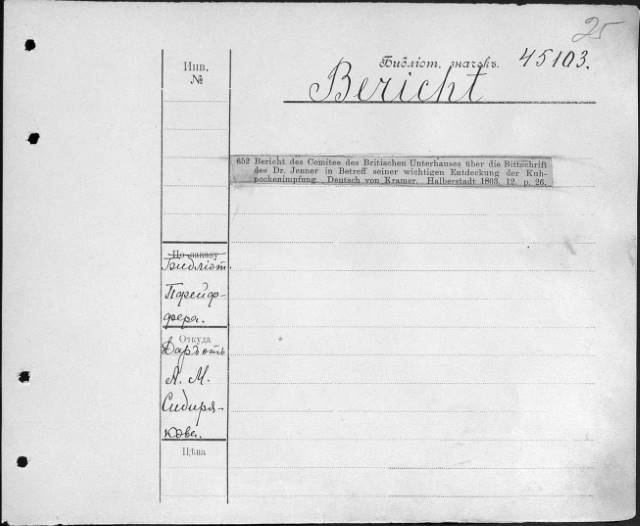 25
Библіот. значекъ. 45103.
Bericht
Инв.
№
652 Bericht des Comitee des Britischen Unterhauses über die Bittschrift
des Dr. Jenner in Betreff seiner wichtigen Entdeckung der Kuh-
pockenimpfung. Deutsch von Kramer. Halberstadt 1803. 12. p. 26.
По заказу
Библіот.
Пфейф-
фера.
Откуда
Даръ отъ
А. М.
Сибиря-
кова.
Цѣна